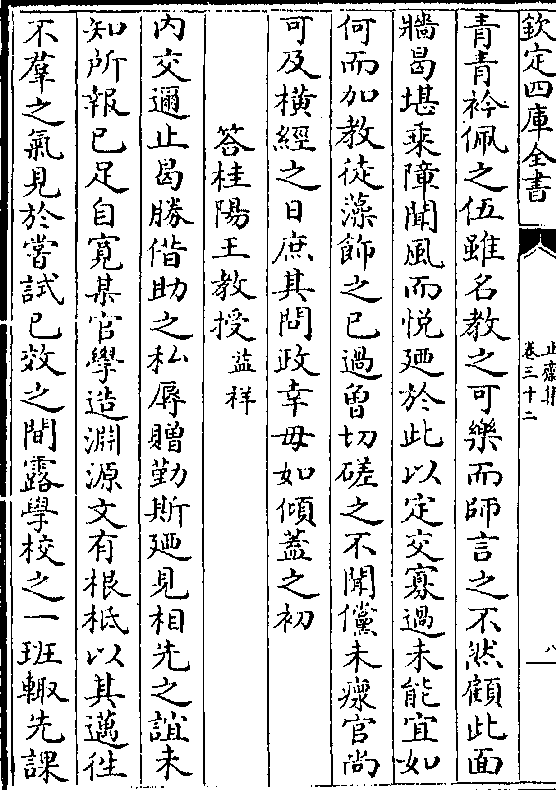 欽定四庫全書
止齋集
卷三十二
八
青青衿佩之伍雖名教之可樂而師言之不然顧此面
牆曷堪乘障聞風而悦廼於此以定交寡過未能宜如
何而加教徒藻飾之已過曽切磋之不聞儻未瘝官尚
可及橫經之日庶其問政幸毋如傾蓋之初
答桂陽王教授益祥
内交邇止曷勝偕助之私辱贈勤斯廼見相先之誼未
知所報已足自寛某官學造淵源文有根柢以其邁徃
不羣之氣見於嘗試已效之間露學校之一班輙先課